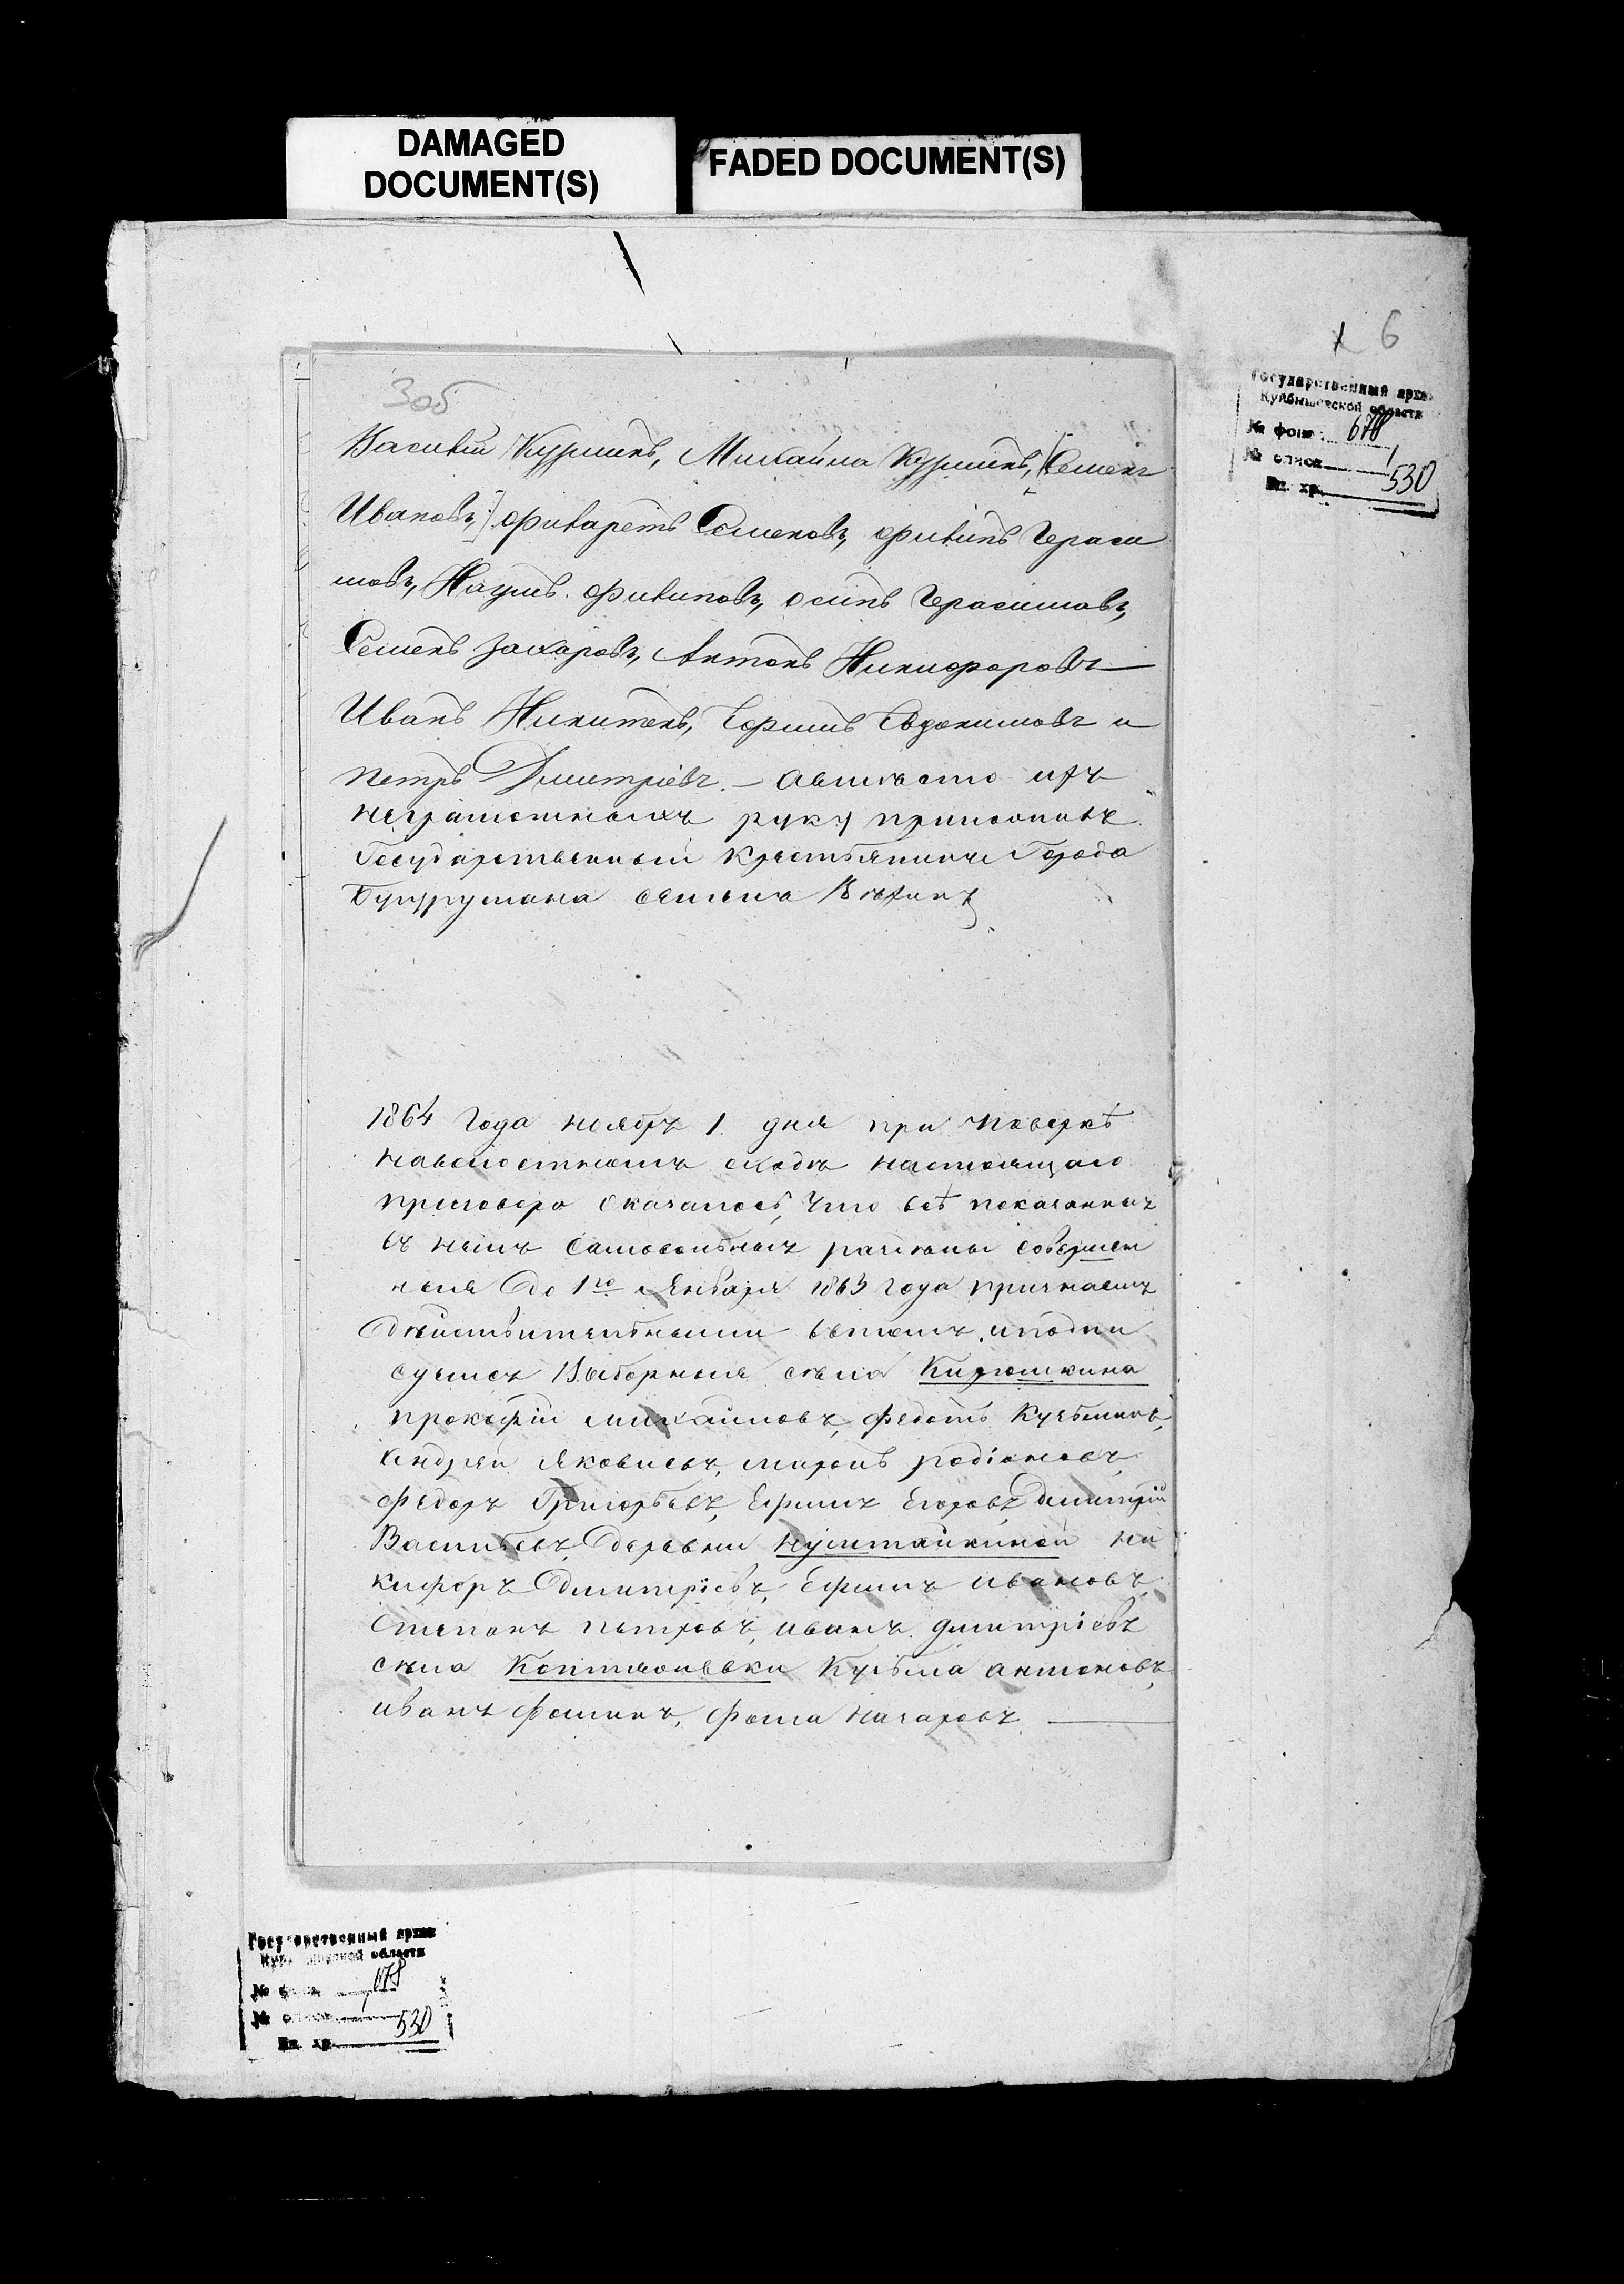 DAMAGED
DOCUMENT(S)
FADED DOCUMENT(S)
6
Государственный архив
Куйбышевской области
№ фонд 678
№ описи 1
Ед. хр. 530
3об
Василій Куршинъ, Михайла Куршинъ, [Семенъ
Ивановъ,] Филаретъ Семеновъ, Филипъ Гераси
мовъ, Наумъ Филиповъ, Осипъ Герасимовъ,
Семенъ Захаровъ, Антонъ Никифоровъ
Иванъ Никитенъ, Ефимъ Евдокимовъ и
Петръ Дмитріевъ. — Авместо ихъ
неграмотныхъ руку приложилъ
Государственный крестьянинъ Города
Бугуруслана
1864 Года ноября 1. дня при поверкѣ
наволостномъ сходѣ настоящаго
приговора Оказалось, Что всѣ показанныя
въ немъ Самовольныя раздѣлы совершен
ныя До 1го Января 1863 года признаемъ
Дѣйствительными вътомъ, иподпи
суемся Выборныя сѣла Кирюшкина
прокофій михайловъ, федотъ Кузьминъ,
Андрей Яковлевъ, миронъ родіоновъ,
Федоръ Григорьевъ, Ефимъ Егоровъ, Дмитрій
Васильевъ, Деревни Нуштайкиной Ни
кифоръ Дмитріевъ, Ефимъ Ивановъ,
Степанъ петровъ, иванъ дмитріевъ
сѣла Коптяжевки Кузьма антоновъ,
иванъ Фоминъ, Фома Назаровъ
Государственный архив
Куйбышевской области
№ фонд 678
№ описи 1
Ед. хр. 530